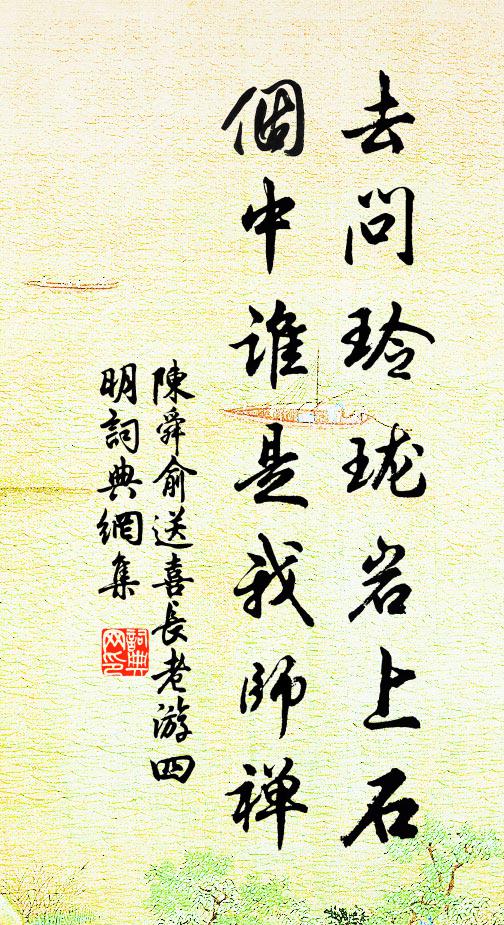 去問玲瓏岩上石
個中誰是我師禅
陳舜俞送喜長老游四
明詞典網集
詞典网印